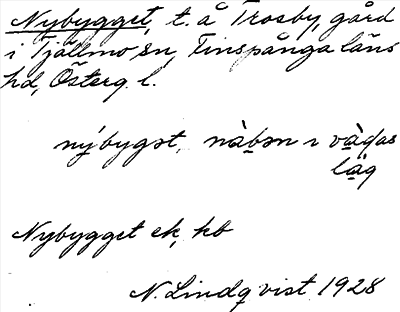 Nybygget, t. å Trosby, gård
i Tjällmo sn, Finspånga läns
hd, Österg. l.
nýbygət, nàbən ı vàdas
låg
Nybygget ek, kb
N. Lindqvist 1928